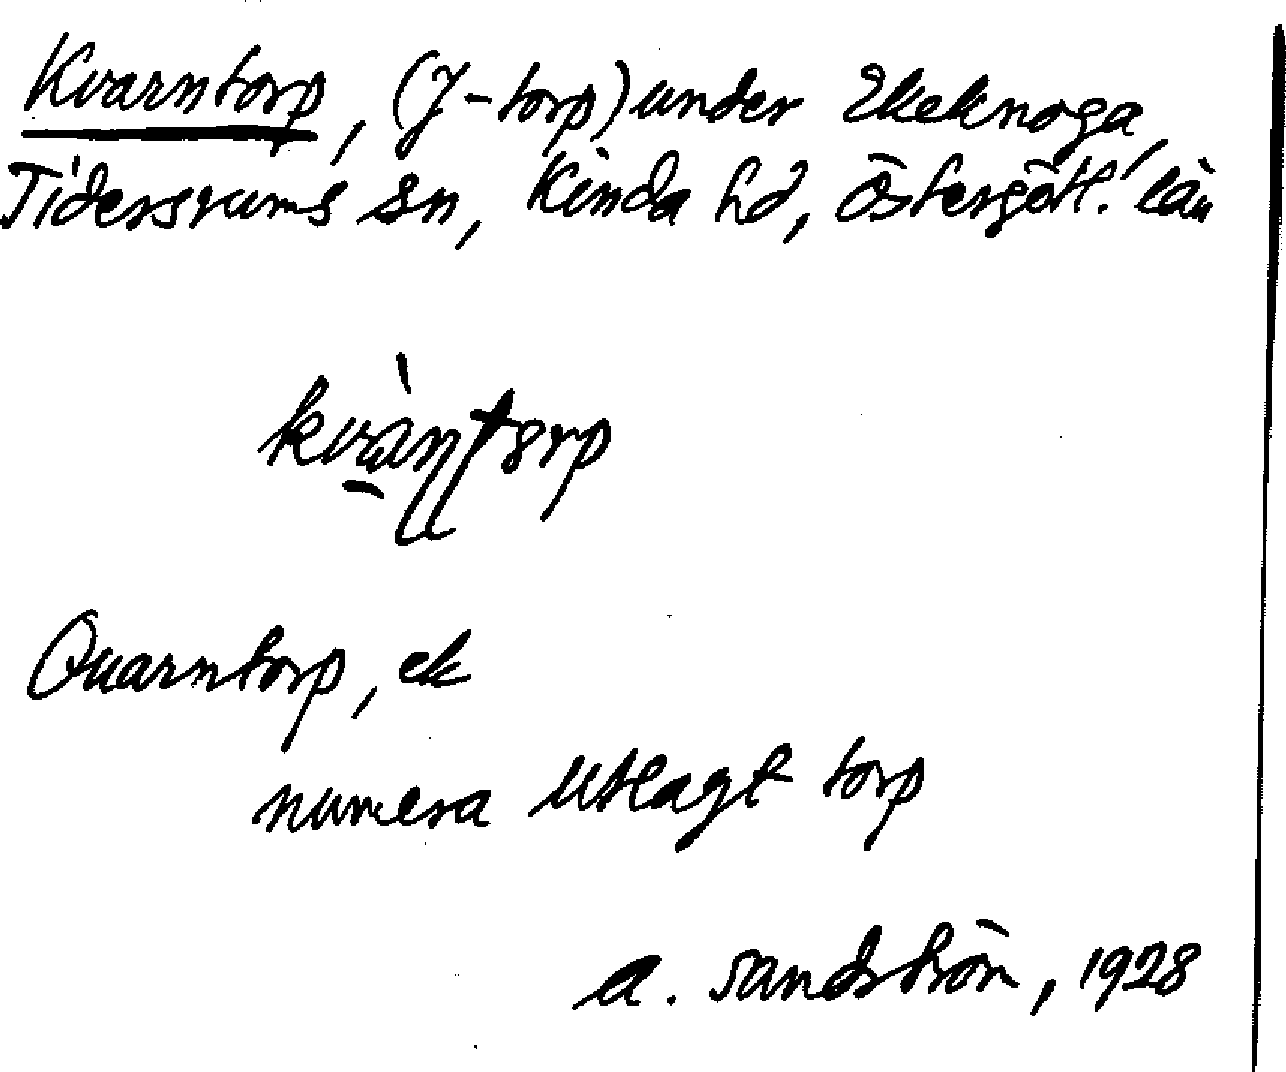 Kvarntorp, (J-torp) under Ekeknoga,
Tidersrums sn, Kinda hd, Östergötl. län
Quarntorp, ek
numera utlagt torp
A. Sandström, 1928